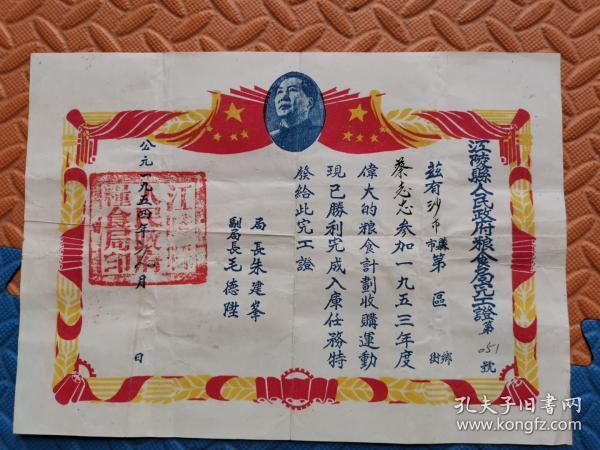 江陵縣人民政府粮食局完工證 第051號
茲有沙市縣市第 區 鄉街
蔡志忠参加一九五三年度
偉大的粮食計劃收購運動
現已勝利完成入庫任務特
發給此完工證
局 長朱建峯
副局長毛德陞
公元一九五四年 月 日
江陵縣人民政府糧食局印
孔夫子旧书网
www.kongfz.com